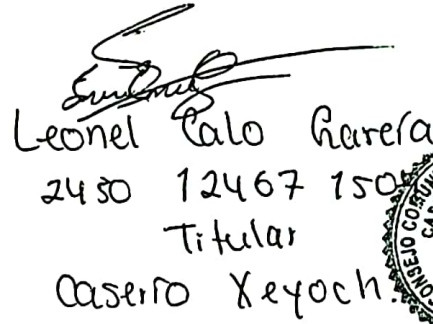 Leonel Calo Garera
2450 12467 150
Titular
Caserio Xeyoch.
CONSEJO COMUN
CA